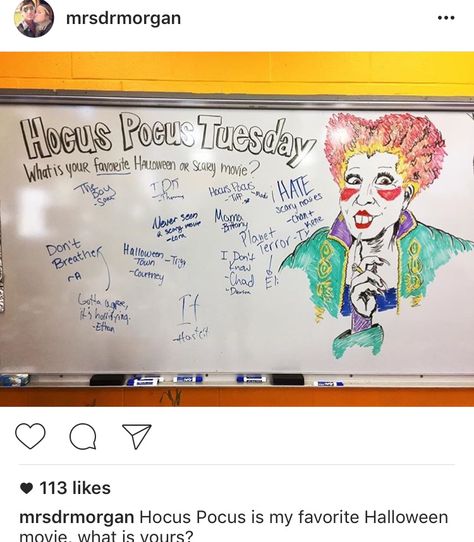 mrsdrmorgan
Hocus Pocus Tuesday
What is your favorite Halloween or Scary movie?
The Boy
I
Hocus Pocus
- Tiff
I HATE
scary movies
Never seen
a scary movie
Mama
Brittany
Planet
Terror
Don't
Breathe
- A
Halloween-
Town
- Courtney
I Don't
Know
- Chad
Gotta agree,
it's horrifying.
- Ethan
It
113 likes
mrsdrmorgan Hocus Pocus is my favorite Halloween
movie, what is yours?